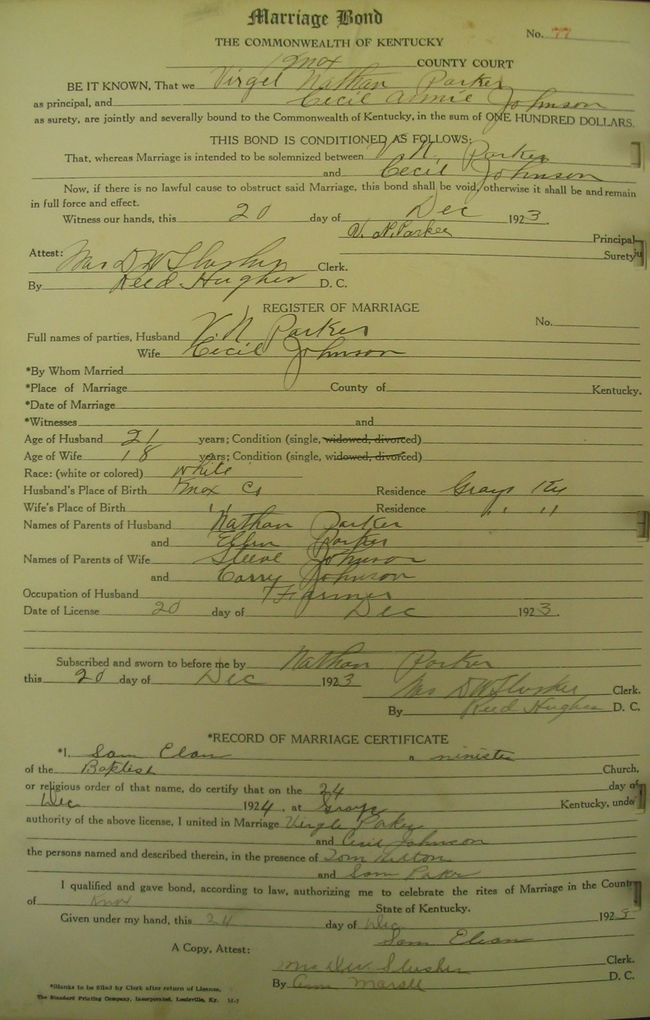 Marriage Bond
No. 77
THE COMMONWEALTH OF KENTUCKY
Knox COUNTY COURT
BE IT KNOWN, That we Virgel Nathan Parker
as principal, and Cecil Annie Johnson
as surety, are jointly and severally bound to the Commonwealth of Kentucky, in the sum of ONE HUNDRED DOLLARS.
THIS BOND IS CONDITIONED AS FOLLOWS:
That, whereas Marriage is intended to be solemnized between V. N. Parker
and Cecil Johnson
Now, if there is no lawful cause to obstruct said Marriage, this bond shall be void, otherwise it shall be and remain
in full force and effect.
Witness our hands, this 20 day of Dec 1923.
V. N. Parker Principal
Surety
Attest: Mrs D W Slusher Clerk.
By Reed Hughes D. C.
REGISTER OF MARRIAGE
No.
Full names of parties, Husband V. N Parker
Wife Cecil Johnson
*By Whom Married
*Place of Marriage County of Kentucky.
*Date of Marriage
*Witnesses and
Age of Husband 21 years; Condition (single, widowed, divorced)
Age of Wife 18 years; Condition (single, widowed, divorced)
Race: (white or colored) White
Husband's Place of Birth Knox Co Residence Grays Ky
Wife's Place of Birth " Residence " "
Names of Parents of Husband Nathan Parker
and Ellen Parker
Names of Parents of Wife Steve Johnson
and Carry Johnson
Occupation of Husband Farmer
Date of License 20 day of Dec 1923.
Subscribed and sworn to before me by Nathan Parker
this 20 day of Dec 1923
Mrs D W Slusher Clerk.
By Reed Hughes D. C.
*RECORD OF MARRIAGE CERTIFICATE
*I, Sam a minister
of the Baptish Church,
or religious order of that name, do certify that on the 24 day of
Dec 1924, at Grays Kentucky, under
authority of the above license, I united in Marriage Virgle Parker
and Cecil Johnson
the persons named and described therein, in the presence of Tom
and Sam
I qualified and gave bond, according to law, authorizing me to celebrate the rites of Marriage in the County
of Knox State of Kentucky.
Given under my hand, this 24 day of Dec 1923
Sam
A Copy, Attest: Mrs D W Slusher Clerk.
By D. C.
*Blanks to be filled by Clerk after return of License.
The Standard Printing Company, Incorporated, Louisville, Ky.